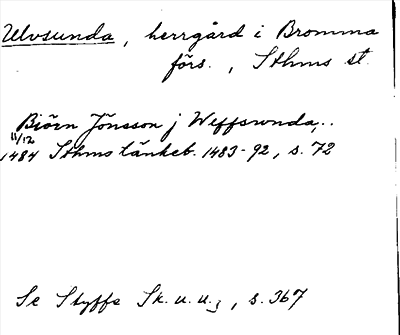 Ulvsunda, herrgård i Bromma
förs., Sthms st.
Biörn Jönsson j Weffswnda,..
11/12
1484 Sthms tänkeb. 1483-92, s. 72
Se Styffe Sk. u. u.3, s. 367